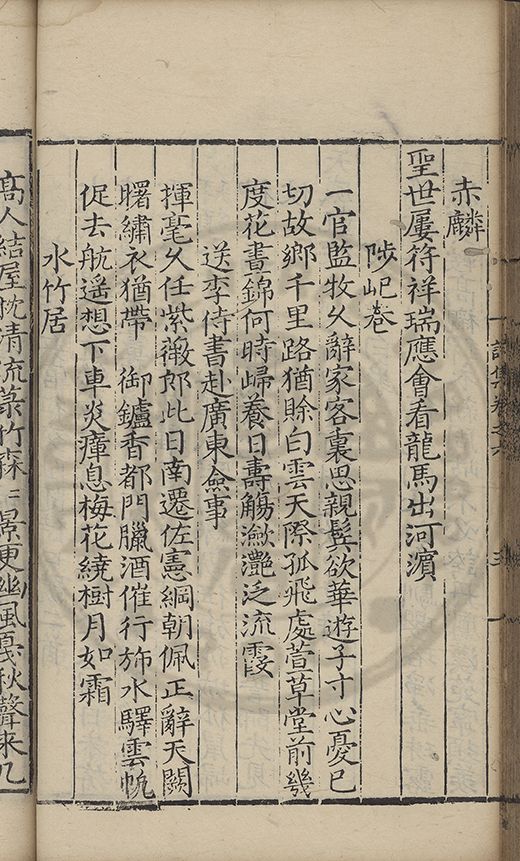 詩集卷之六
三
赤麟
聖世屢符祥瑞應會看龍馬出河濵
陟屺卷
一官監牧乆辭家客裏思親鬂欲華遊子寸心憂已
切故鄉千里路猶賖白雲天際孤飛處萱草堂前幾
度花晝錦何時㱕養日壽觴瀲灔泛流霞
送李侍書赴廣東僉事
揮毫乆任紫薇郎此日南遷佐憲綱朝佩正辭天闕
曙繡衣猶帶 御鑪香都門臘酒催行斾水驛雲帆
促去航遥想下車炎瘴息梅花繞樹月如霜
水竹居
高人結屋枕清流菉竹森〻景更幽風戛秋聲来几